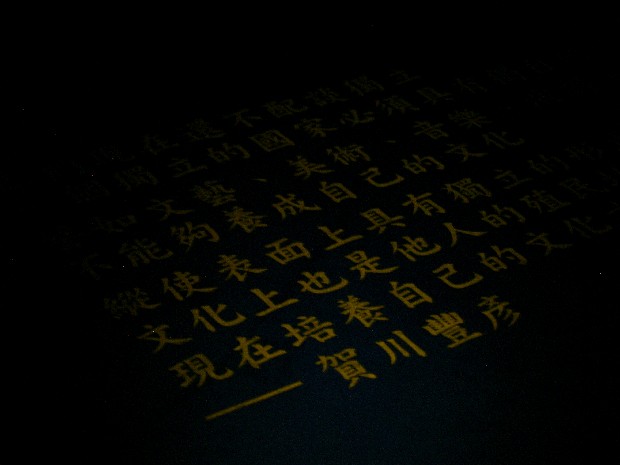 在還不配談獨立
個獨立的國家必須具有
如文藝、美術、音樂、
不能夠養成自己的文化
縱使表面上具有獨立的形
文化上也是他人的殖民
現在培養自己的文化
——賀川豐彥